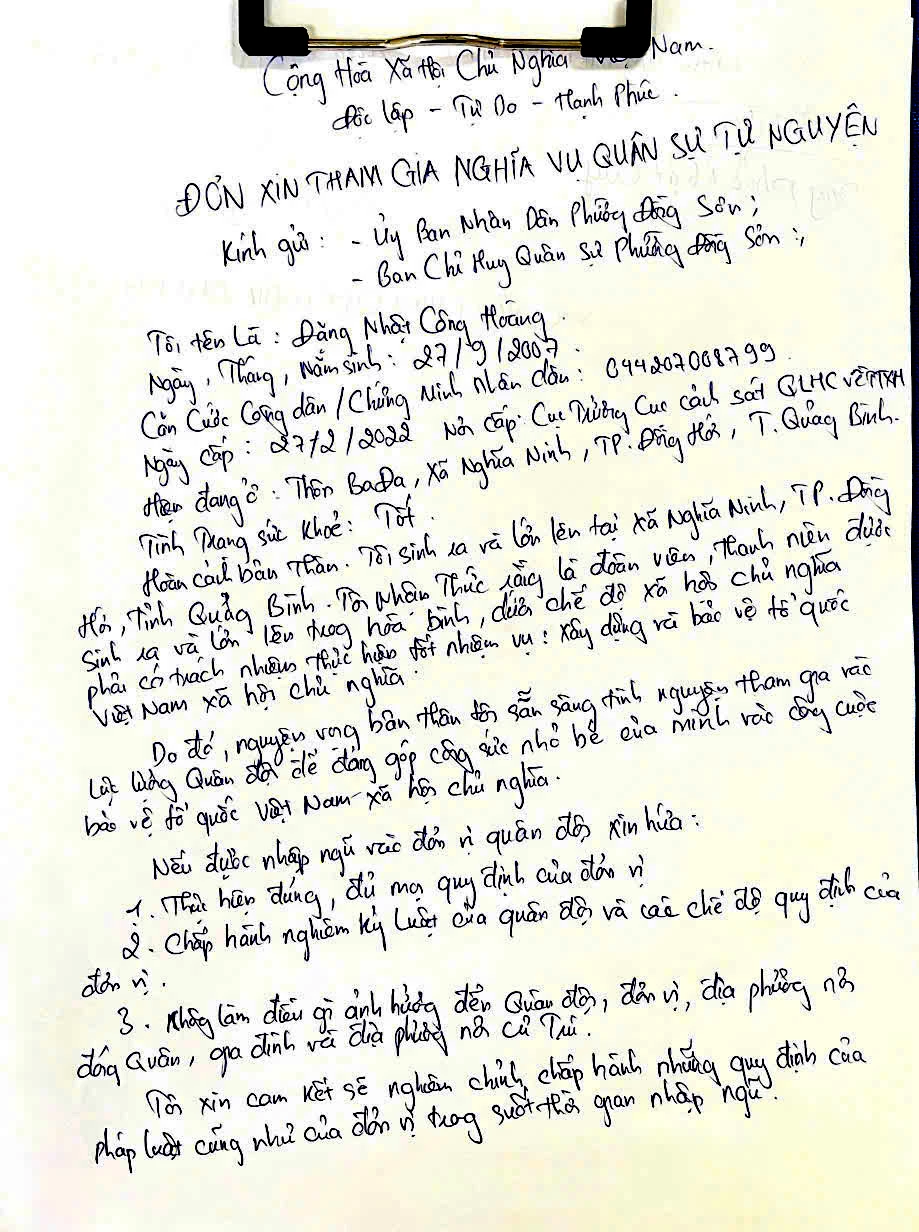 Cộng Hòa Xã Hội Chủ Nghĩa Nam.
Độc lập - Tự Do - Hạnh Phúc.
ĐƠN XIN THAM GIA NGHĨA VỤ QUÂN SỰ TỰ NGUYỆN
Kính gửi: - Ủy Ban Nhân Dân Phường Đồng Sơn;
- Ban Chỉ Huy Quân Sự Phường Đồng Sơn;
Tôi tên là: Đặng Nhật Công Hoàng.
Ngày, Tháng, Năm sinh: 27/9/2007.
Căn Cước Công dân/Chứng Minh nhân dân: 044207008799.
Ngày cấp: 27/2/2022 Nơi cấp: Cục Trưởng Cục cảnh sát QLHC về TTXH
Hiện đang ở: Thôn Ba Đa, Xã Nghĩa Ninh, TP. Đồng Hới, T. Quảng Bình.
Tình Trạng sức khoẻ: Tốt.
Hoàn cảnh bản thân. Tôi sinh ra và lớn lên tại xã Nghĩa Ninh, TP. Đồng
Hới, Tỉnh Quảng Bình. Tôi nhận thức rằng là đoàn viên, thanh niên được
sinh ra và lớn lên trong hòa bình, dưới chế độ xã hội chủ nghĩa
phải có trách nhiệm thực hiện tốt nhiệm vụ: xây dựng và bảo vệ tổ quốc
Việt Nam xã hội chủ nghĩa.
Do đó, nguyện vọng bản thân tôi sẵn sàng tình nguyện tham gia vào
lực lượng Quân đội để đóng góp công sức nhỏ bé của mình vào công cuộc
bảo vệ tổ quốc Việt Nam xã hội chủ nghĩa.
Nếu được nhập ngũ vào đơn vị quân đội xin hứa:
1. Thực hiện đúng, đủ mọi quy định của đơn vị
2. Chấp hành nghiêm kỷ luật của quân đội và các chế độ quy định của
đơn vị.
3. Không làm điều gì ảnh hưởng đến Quân đội, đơn vị, địa phương nơi
đóng Quân, gia đình và địa phương nơi cư trú.
Tôi xin cam kết sẽ nghiêm chỉnh chấp hành những quy định của
pháp luật cũng như của đơn vị trong suốt thời gian nhập ngũ.